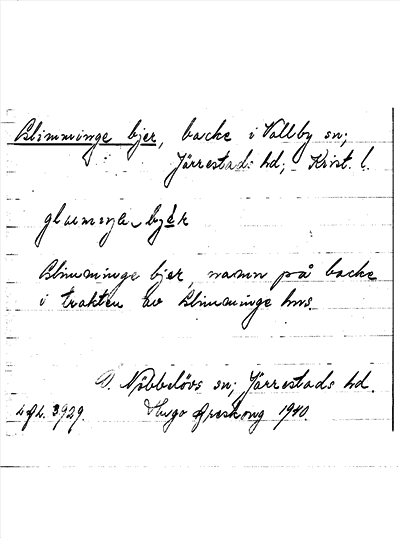 Glimminge bjer, backe i Vallby sn;
Järrestads hd; Krist. l.
Glimminge bjer, namn på backe
i trakten av Glimminge hus.
Ö. Nöbbelövs sn; Järrestads hd.
3929. Hugo Areskoug 1910.